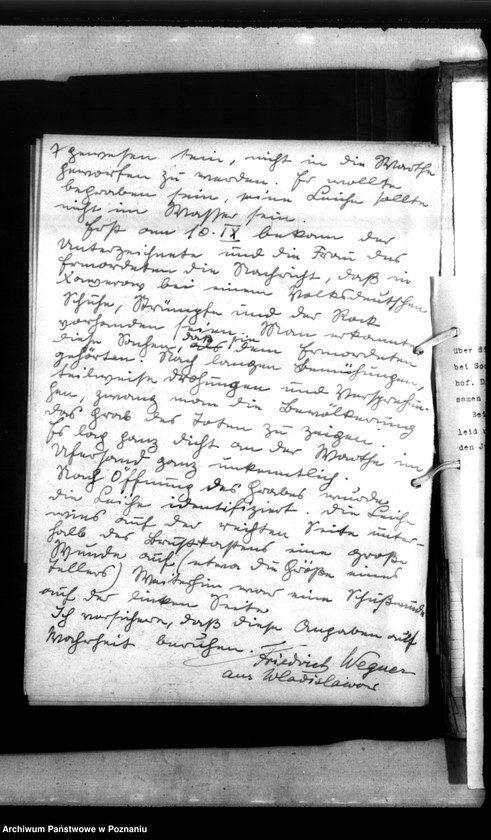 gewesen sein, nicht in die Warthe
geworfen zu werden. Er wollte
begraben sein, seine Leiche sollte
nicht im Wasser sein.
Erst am 10. IX bekam der
Unterzeichnete und die Frau des
Ermordeten die Nachricht, daß in
Kawerow bei einem Volksdeutschen
Schuhe, Strümpfe und der Rock
vorhanden seien. Man erkannte
diese Sachen, daß sie dem Ermordeten
gehörten. Nach langen Bemühungen,
teilweise Drohungen und Versprechun-
gen, zwang man die Bevölkerung
das Grab des Toten zu zeigen.
Es lag ganz dicht an der Warthe im
Ufersand ganz unkenntlich.
Nach Öffnung des Grabes wurde
die Leiche identifiziert. Die Leiche
wies auf der rechten Seite unter-
halb des Brustkastens eine große
Wunde auf (etwa die Größe eines
Tellers) Weiterhin war eine Schußwunde
auf der linken Seite
Ich versichere, daß diese Angaben auf
Wahrheit beruhen.
Friedrich Wegner
aus Wladislawow
über di
bei Gos
hof. D
samen
Bei
leid u
den J
Archiwum Państwowe w Poznaniu